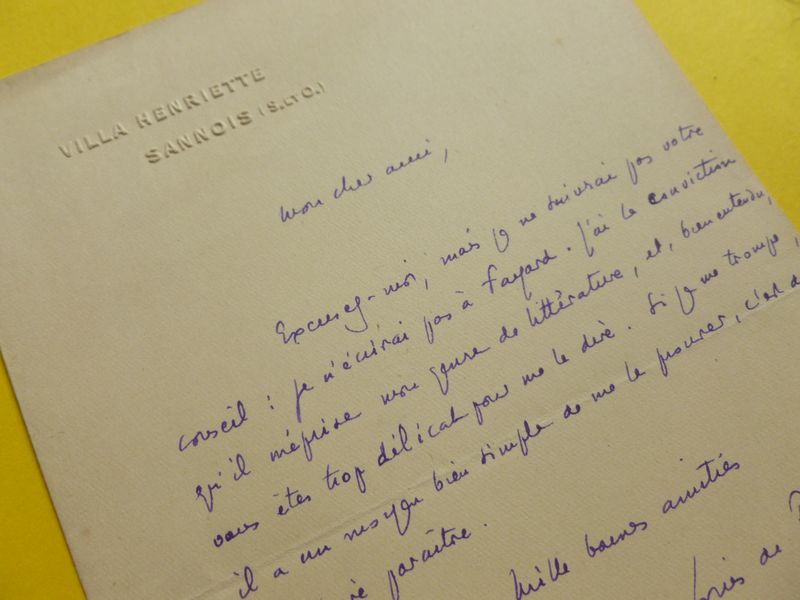 VILLA HENRIETTE
SANNOIS (S. ET O.)
Mon cher ami,
Excusez-moi, mais je ne suivrai pas votre
conseil : je n'écrirai pas à Fayard. J'ai la conviction
qu'il méprise mon genre de littérature, et, bien entendu,
vous êtes trop délicat pour me le dire. Si je me trompe,
il a un moyen bien simple de me le prouver, c'est d
paraître.
Mille bonnes amitiés
de